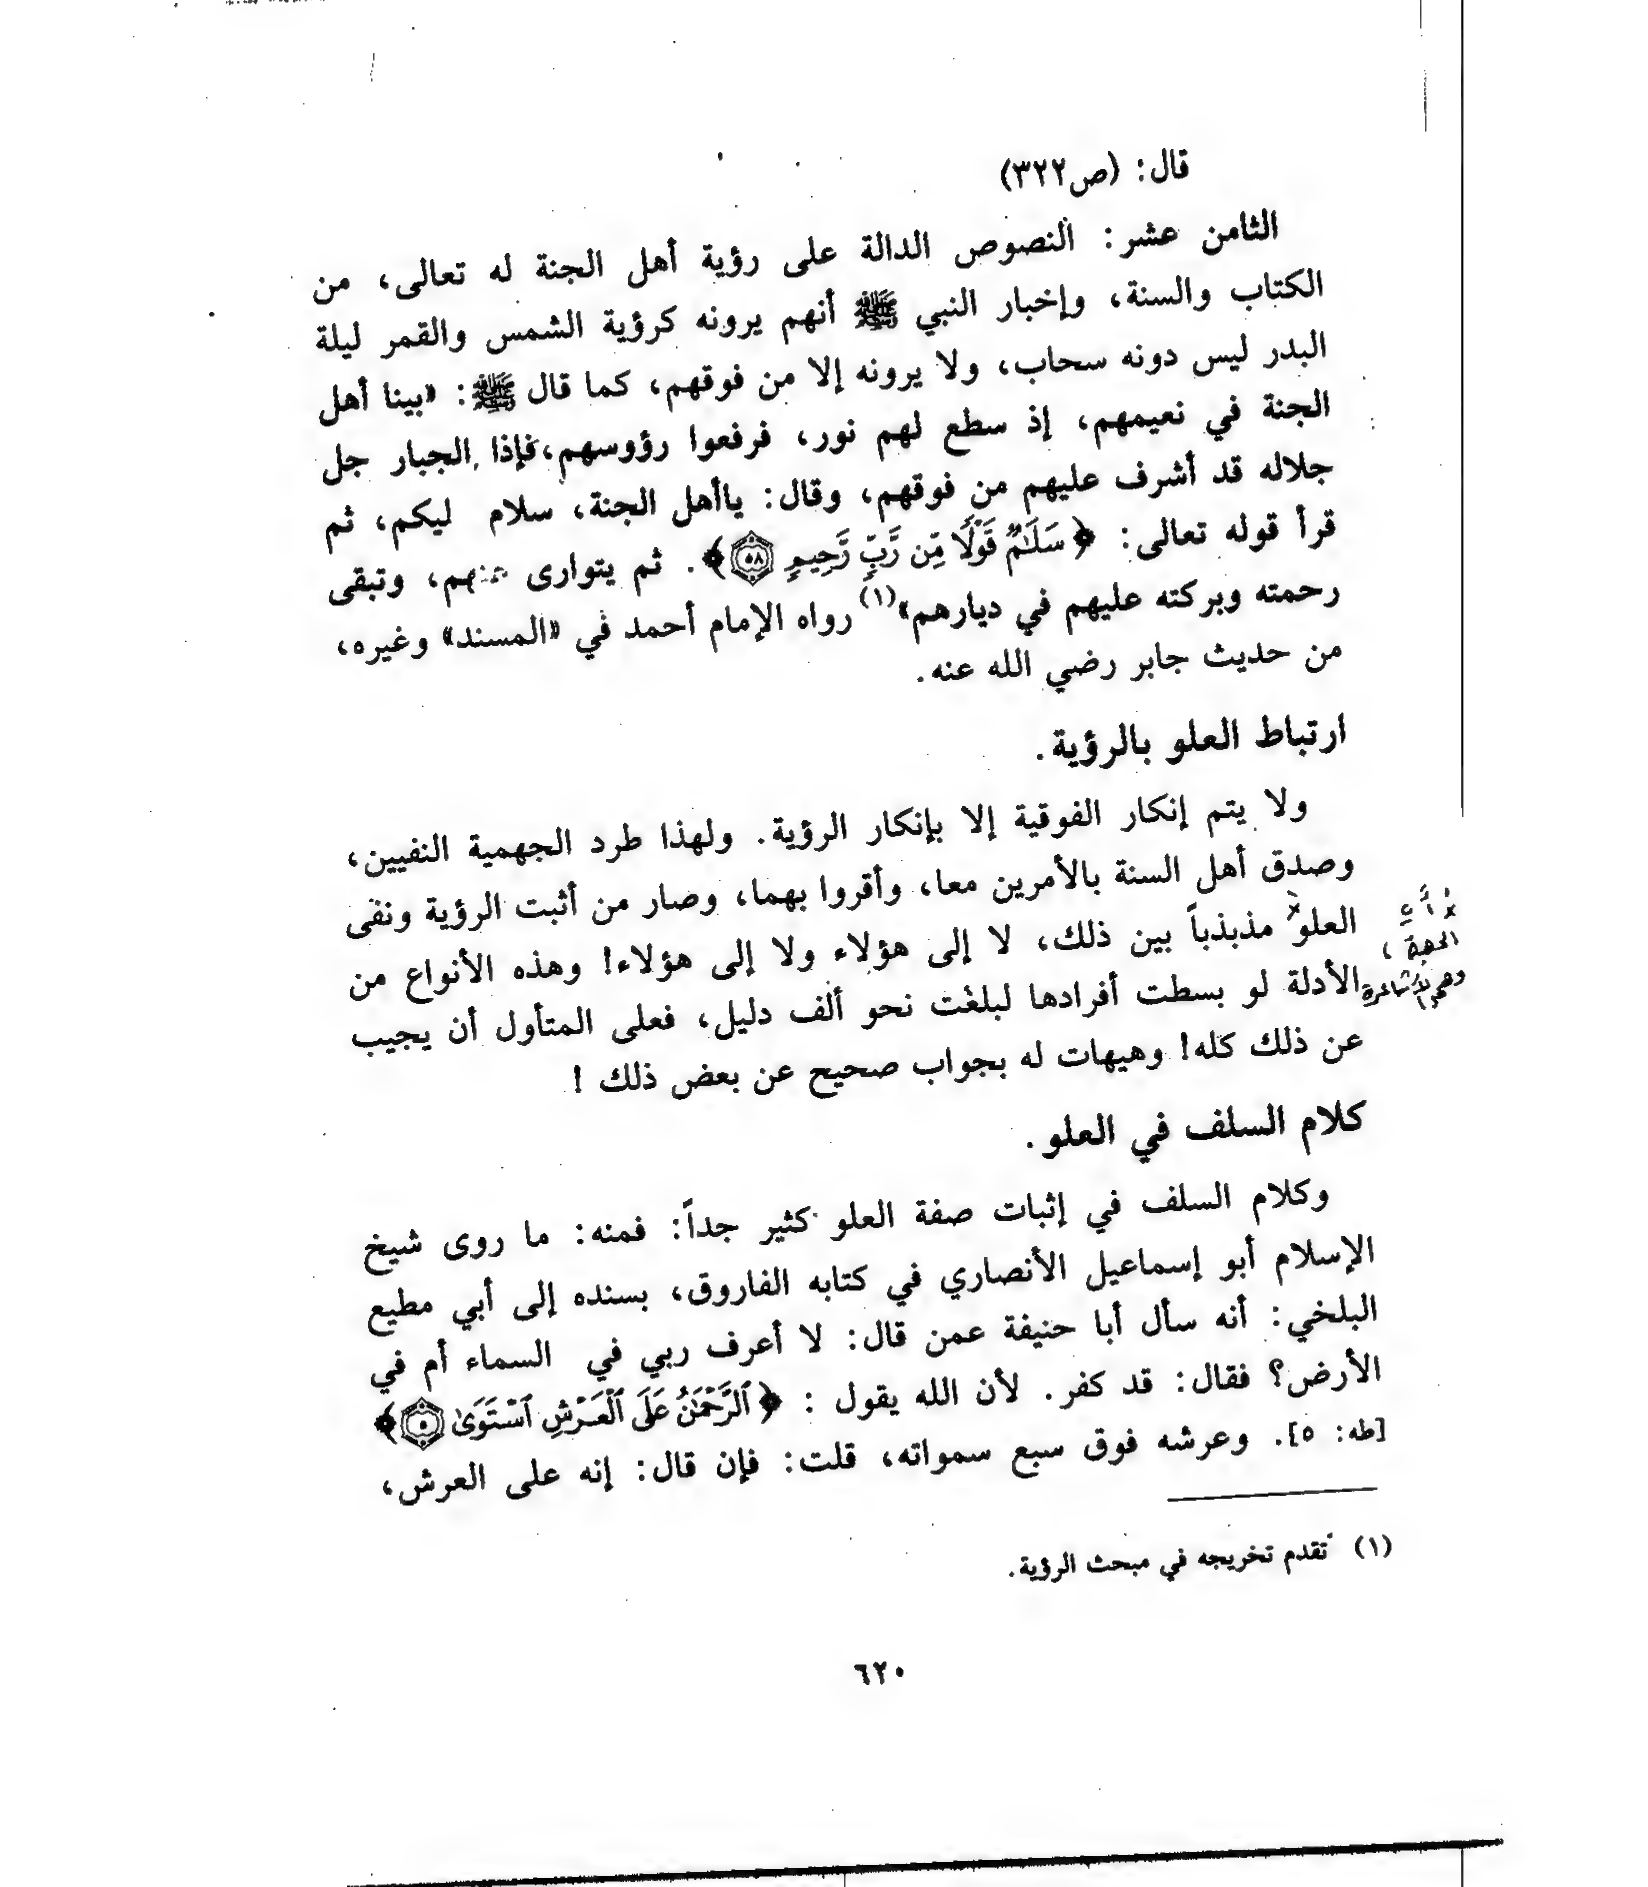 قال: (ص٣٢٢)
الثامن عشر: النصوص الدالة على رؤية أهل الجنة له تعالى، من
الكتاب والسنة، وإخبار النبي ﷺ أنهم يرونه كرؤية الشمس والقمر ليلة
البدر ليس دونه سحاب، ولا يرونه إلا من فوقهم، كما قال ﷺ: «بينا أهل
الجنة في نعيمهم، إذ سطع لهم نور، فرفعوا رؤوسهم، فإذا الجبار جل
جلاله قد أشرف عليهم من فوقهم، وقال: ياأهل الجنة، سلام ليكم، ثم
قرأ قوله تعالى: ﴿سَلَٰمٌ قَوْلًا مِّن رَّبٍّ رَّحِيمٍ ٥٨﴾. ثم يتوارى عنهم، وتبقى
رحمته وبركته عليهم في ديارهم»(١) رواه الإمام أحمد في «المسند» وغيره،
من حديث جابر رضي الله عنه.
ارتباط العلو بالرؤية.
ولا يتم إنكار الفوقية إلا بإنكار الرؤية. ولهذا طرد الجهمية النفيين،
وصدق أهل السنة بالأمرين معا، وأقروا بهما، وصار من أثبت الرؤية ونفى
العلو مذبذباً بين ذلك، لا إلى هؤلاء ولا إلى هؤلاء! وهذه الأنواع من
الأدلة لو بسطت أفرادها لبلغت نحو ألف دليل، فعلى المتأول أن يجيب
عن ذلك كله! وهيهات له بجواب صحيح عن بعض ذلك !
الجهة،
وهم الأشاعرة
كلام السلف في العلو.
وكلام السلف في إثبات صفة العلو كثير جداً: فمنه: ما روى شيخ
الإسلام أبو إسماعيل الأنصاري في كتابه الفاروق، بسنده إلى أبي مطيع
البلخي: أنه سأل أبا حنيفة عمن قال: لا أعرف ربي في السماء أم في
الأرض؟ فقال: قد كفر. لأن الله يقول : ﴿ٱلرَّحْمَٰنُ عَلَى ٱلْعَرْشِ ٱسْتَوَىٰ ٥﴾
[طه: ٥]. وعرشه فوق سبع سمواته، قلت: فإن قال: إنه على العرش،
(١) تقدم تخريجه في مبحث الرؤية.
٦٢٠